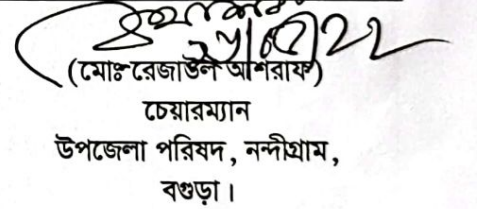 (মোঃ রেজাউল আশরাফ)
চেয়ারম্যান
উপজেলা পরিষদ, নন্দীগ্রাম,
বগুড়া।